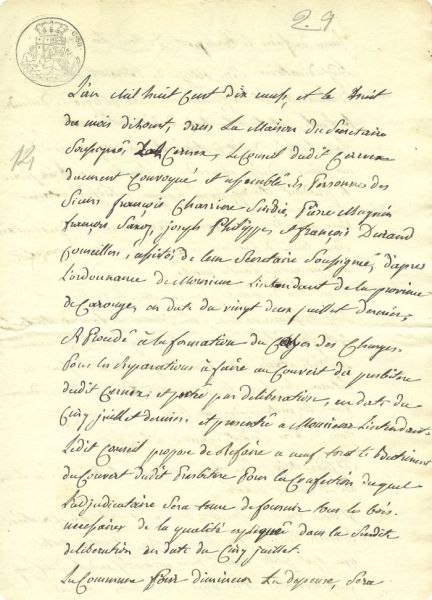 2.9
L'an Mil huit Cent dix neuf, et le huit
du mois d'Aout, dans La Maison du Secretaire
Soussigné, Cernex, le Conseil dudit Cernex
duement Convoqué et assemblé Es Personnes des
Sieurs françois Charriere Sindic, Pierre Magnin
françois Saxoz, joseph Philippes et françois Durand
Conseillers, assistés de leur Secretaire Soussigné, d'apres
l'ordonnance de Monsieur l'intendant de la province
de Carouge, en date du vingt deux juillet dernier,
A Procédé à la formation du Cayer des Charges
Pour les Reparations à faire au Couvert du presbitere
dudit Cernex, et porté par deliberation, en date du
Cinq juillet dernier et presenté a Monsieur l'intendant.
Ledit Conseil propose de Refaire a neuf tout le
du Couvert dudit Presbitere Pour la Confection duquel
L'adjudicataire Sera tenu de fournir tous les bois
necessaires de la qualité expliquée dans la Susdite
deliberation en date du Cinq juillet.
La Commune Pour diminuer La depense, Sera